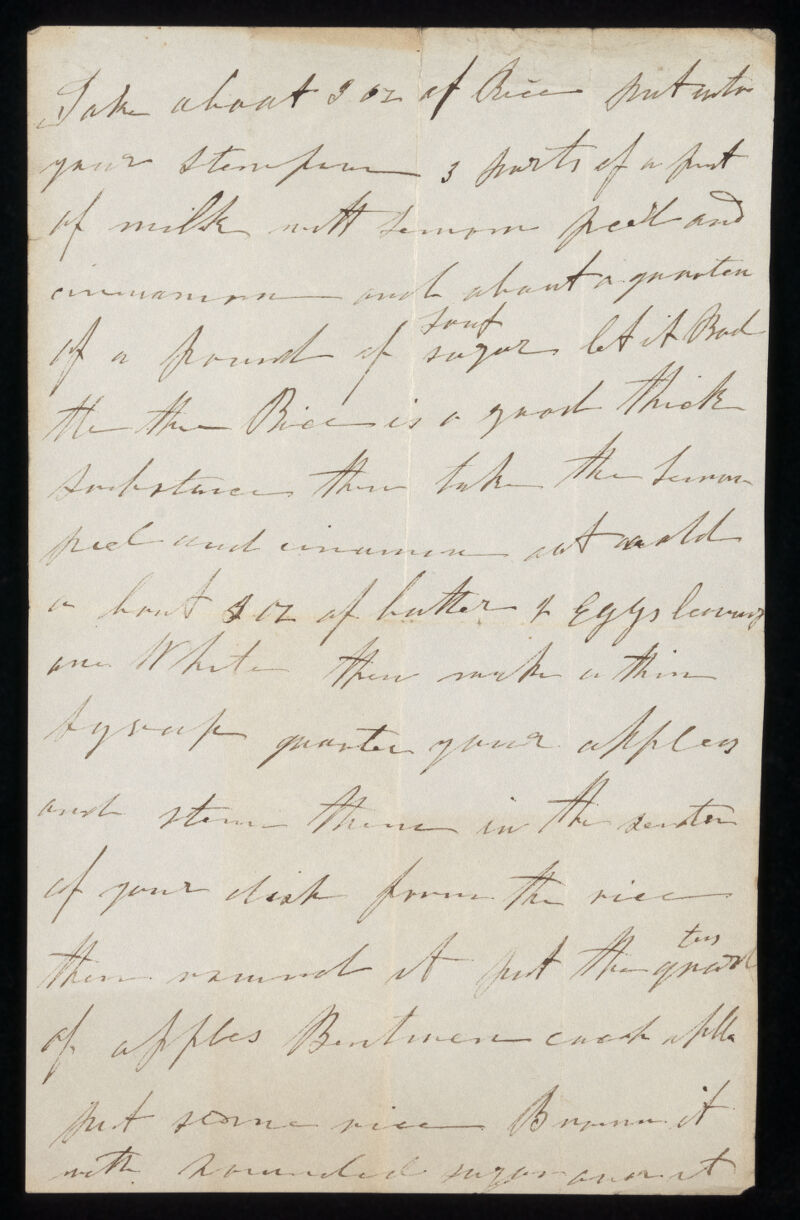 Take about 3 oz of Rice put into
your stewpan 3 parts of a pint
of milk with Lemon peel and
cinnamon and about a quarter
of a pound of loaf sugar let it Boil
till the Rice is a good thick
substance then take the Lemon
peel and cinnamon out add
a bout 3 oz of butter 2 Eggs leaving
one White then make a thin
syroup quarter your apples
and stew them in the center
of your dish form the rice
then round it put the quarters
of apples Bentween each apple
put some rice Brown it
with pounded sugar over it